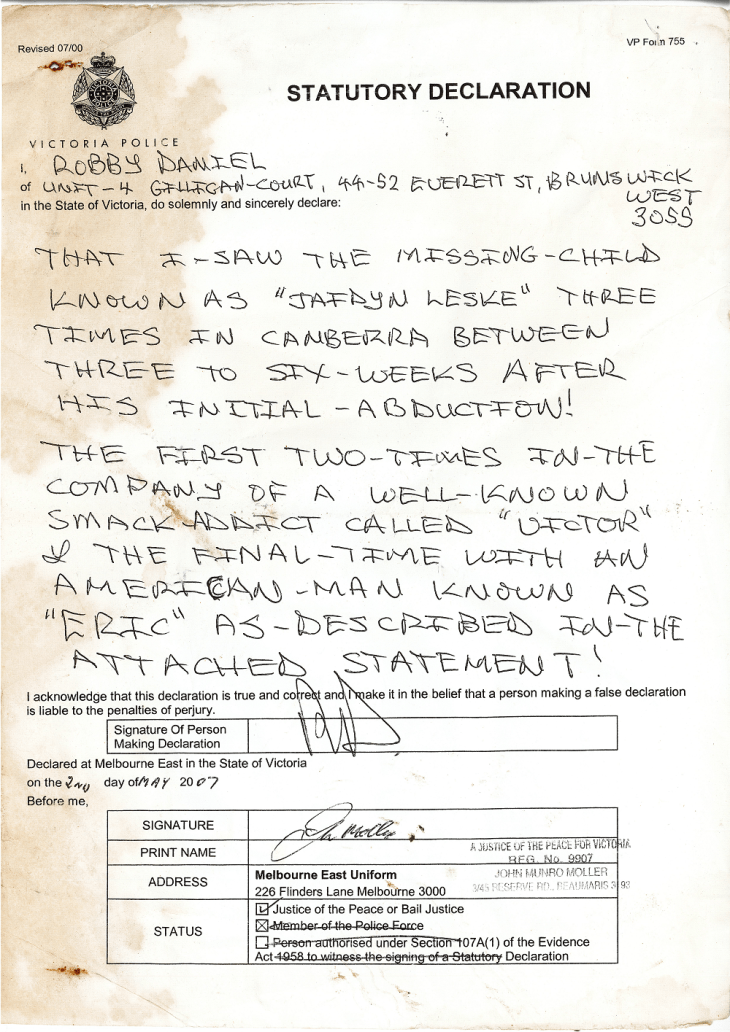 Revised 07/00
VP Form 755
STATUTORY DECLARATION
VICTORIA POLICE
I, ROBBY DANIEL
of UNIT-4 GILLIGAN-COURT, 44-52 EVERETT ST, BRUNSWICK
WEST
3055
in the State of Victoria, do solemnly and sincerely declare:
THAT I-SAW THE MISSING-CHILD
KNOWN AS "JAIDYN LESKE" THREE
TIMES IN CANBERRA BETWEEN
THREE TO SIX-WEEKS AFTER
HIS INITIAL-ABDUCTION!
THE FIRST TWO-TIMES IN-THE
COMPANY OF A WELL-KNOWN
SMACK-ADDICT CALLED "VICTOR"
& THE FINAL-TIME WITH AN
AMERICAN-MAN KNOWN AS
"ERIC" AS-DESCRIBED IN-THE
ATTACHED STATEMENT!
I acknowledge that this declaration is true and correct and I make it in the belief that a person making a false declaration
is liable to the penalties of perjury.
Signature Of Person
Making Declaration
Declared at Melbourne East in the State of Victoria
on the 2ND day of MAY 2007
Before me,
SIGNATURE J M Moller
PRINT NAME
A JUSTICE OF THE PEACE FOR VICTORIA
REG. No. 9907
ADDRESS
Melbourne East Uniform
226 Flinders Lane Melbourne 3000
JOHN MUNRO MOLLER
3/45 RESERVE RD., BEAUMARIS 3193
STATUS
Justice of the Peace or Bail Justice
Member of the Police Force
Person authorised under Section 107A(1) of the Evidence
Act 1958 to witness the signing of a Statutory Declaration